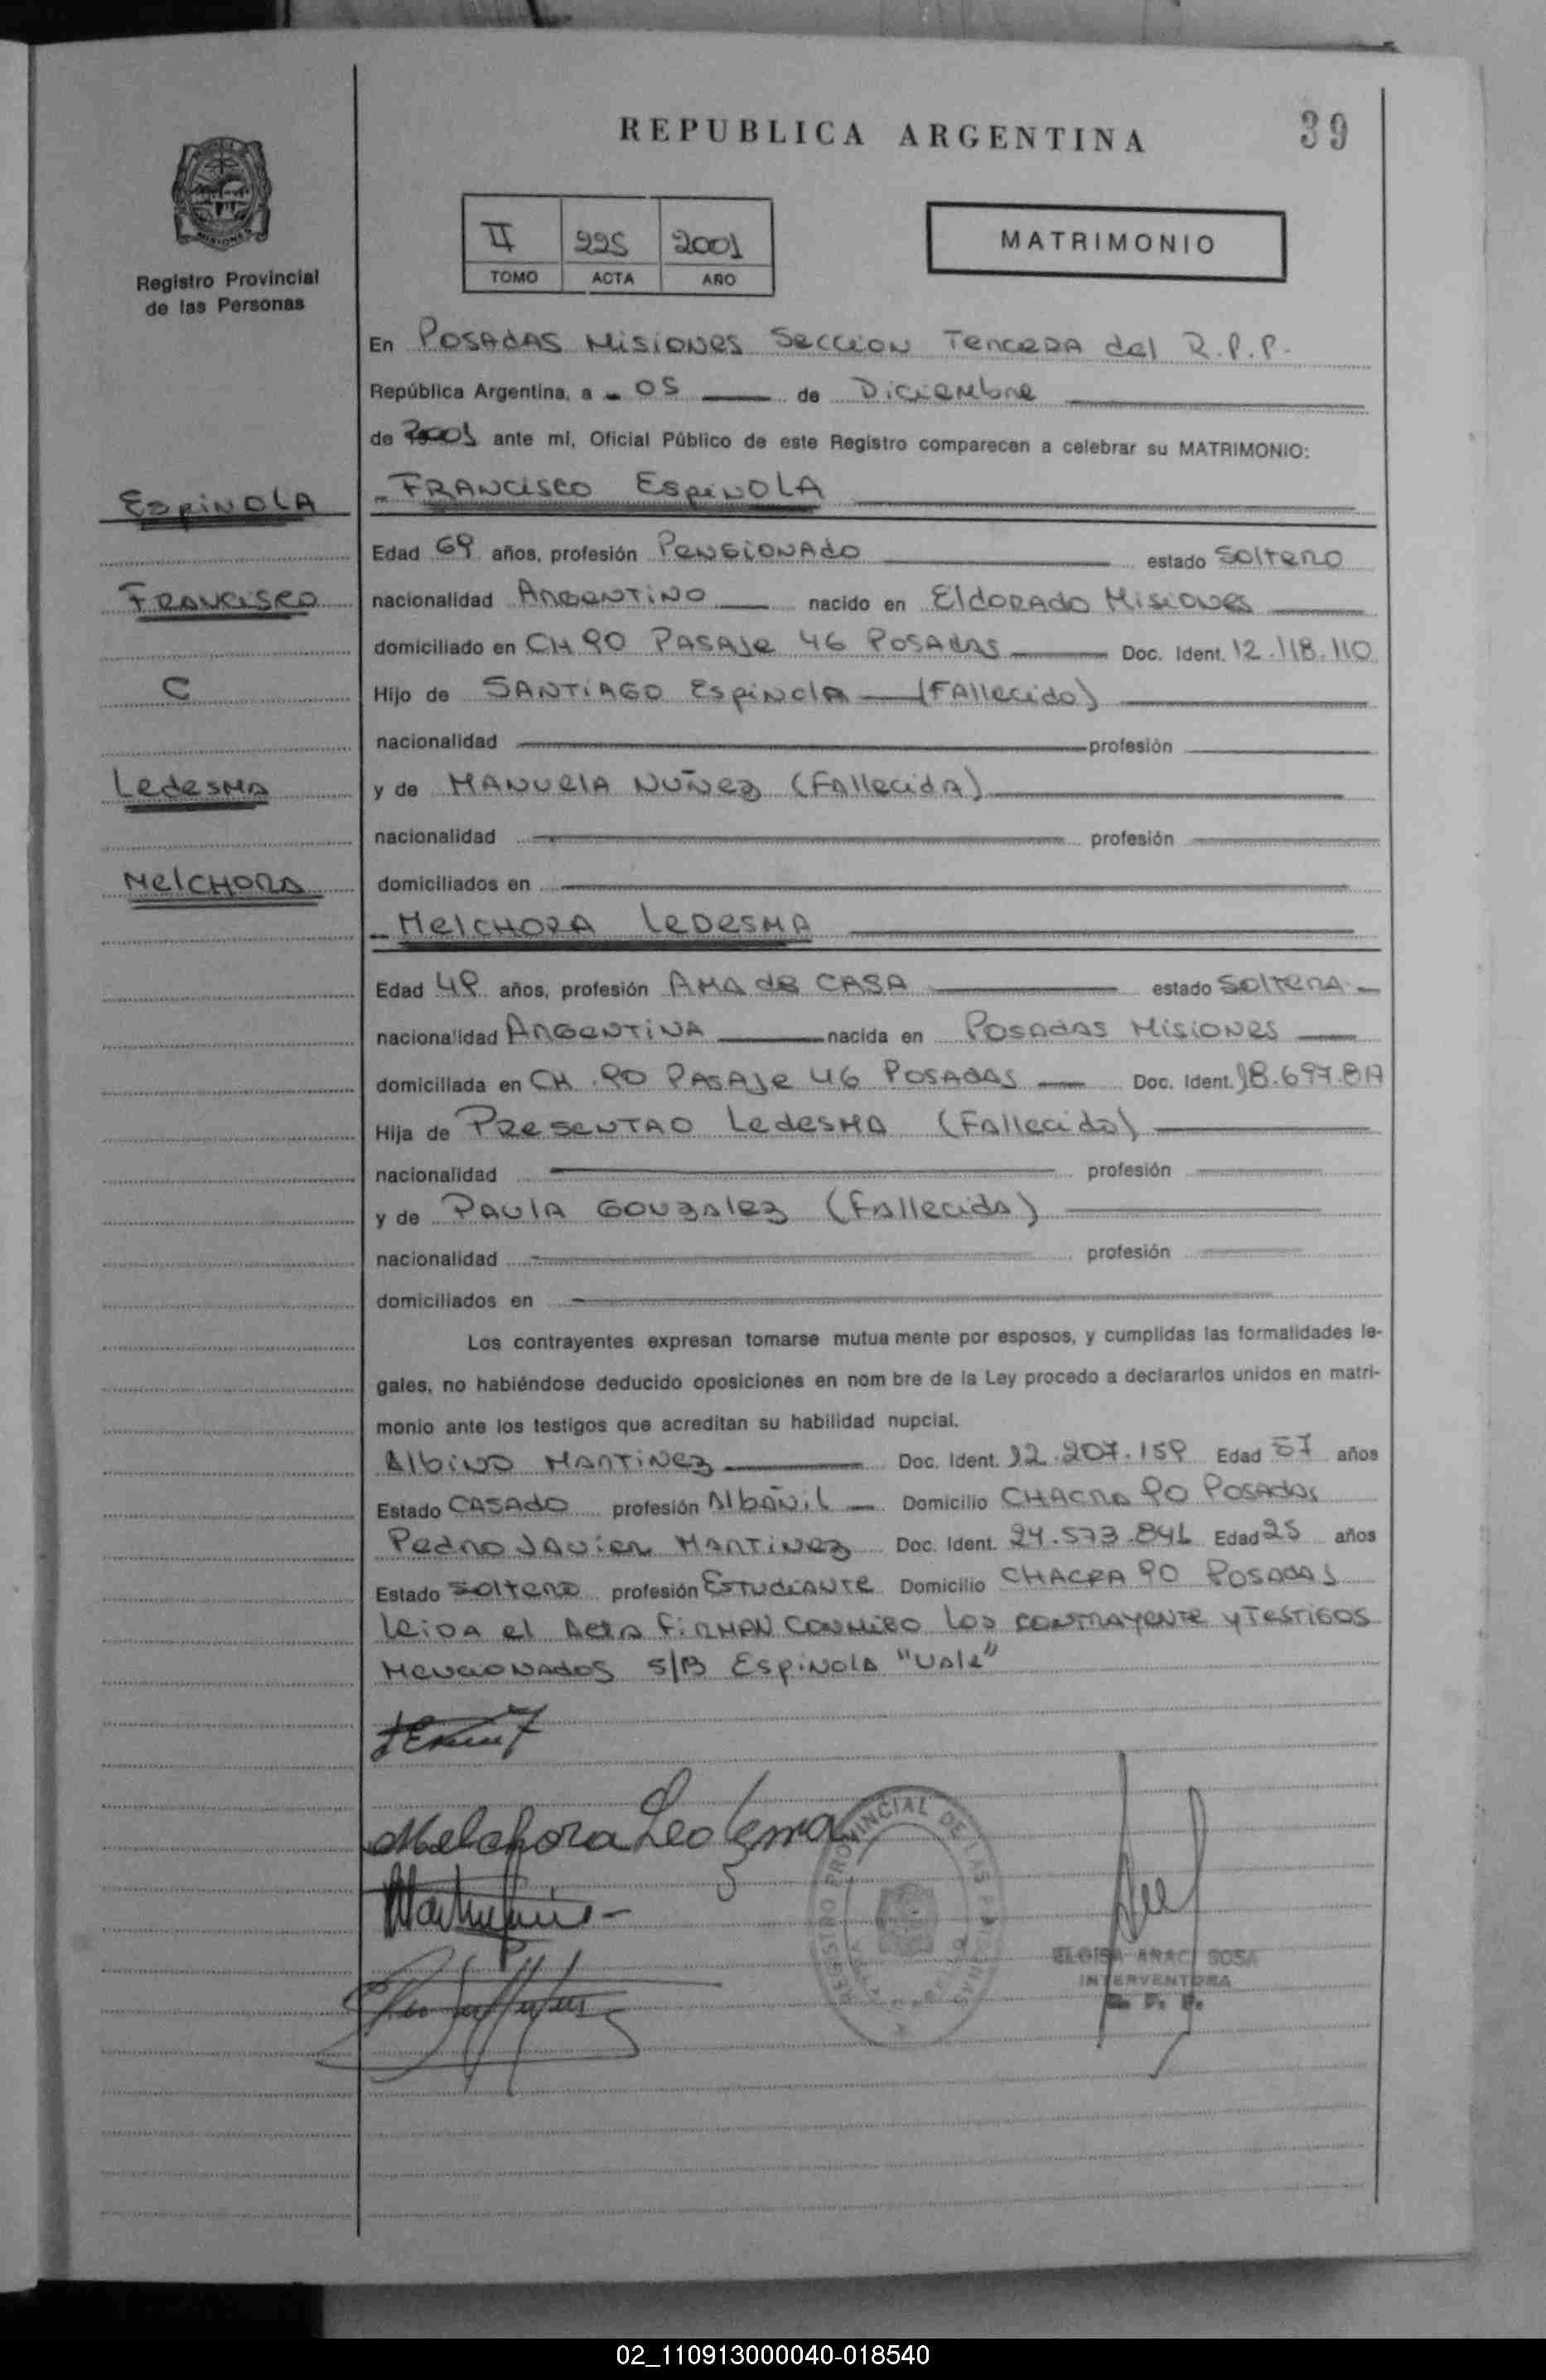 REPUBLICA ARGENTINA
39
Registro Provincial
de las Personas
II 225 2001
TOMO ACTA AÑO
MATRIMONIO
En POSADAS MISIONES SECCION TERCERA del R.P.P.
República Argentina, a 05 de Diciembre
de 2001 ante mí, Oficial Público de este Registro comparecen a celebrar su MATRIMONIO:
ESPINOLA
FRANCISCO ESPINOLA
Edad 69 años, profesión PENSIONADO estado SOLTERO
FRANCISCO
nacionalidad ARGENTINO nacido en ELDORADO MISIONES
domiciliado en CH 90 PASAJE 46 POSADAS Doc. Ident. 12.118.110
C
Hijo de SANTIAGO ESPINOLA (FALLECIDO)
nacionalidad profesión
LEDESMA
y de MANUELA NUÑEZ (FALLECIDA)
nacionalidad profesión
MELCHORA
domiciliados en
MELCHORA LEDESMA
Edad 49 años, profesión AMA DE CASA estado SOLTERA
nacionalidad ARGENTINA nacida en POSADAS MISIONES
domiciliada en CH. 90 PASAJE 46 POSADAS Doc. Ident.
Hija de PRESENTAO LEDESMA (FALLECIDO)
nacionalidad profesión
y de PAULA GONZALEZ (FALLECIDA)
nacionalidad profesión
domiciliados en
Los contrayentes expresan tomarse mutua mente por esposos, y cumplidas las formalidades le-
gales, no habiéndose deducido oposiciones en nom bre de la Ley procedo a declararlos unidos en matri-
monio ante los testigos que acreditan su habilidad nupcial.
ALBINO MARTINEZ Doc. Ident. 12.207.159 Edad 57 años
Estado CASADO profesión ALBAÑIL Domicilio CHACRA 90 POSADAS
PEDRO JAVIER MARTINEZ Doc. Ident. 24.573.841 Edad 25 años
Estado SOLTERO profesión ESTUDIANTE Domicilio CHACRA 90 POSADAS
LEIDA el ACTA FIRMAN CONMIGO LOS CONTRAYENTE y TESTIGOS
MENCIONADOS S/B ESPINOLA "VALE"
Melchora Ledesma
REGISTRO PROVINCIAL DE LAS PERSONAS
ELOISA ARACI SOSA
INTERVENTORA
R. P. P.
02_110913000040-018540